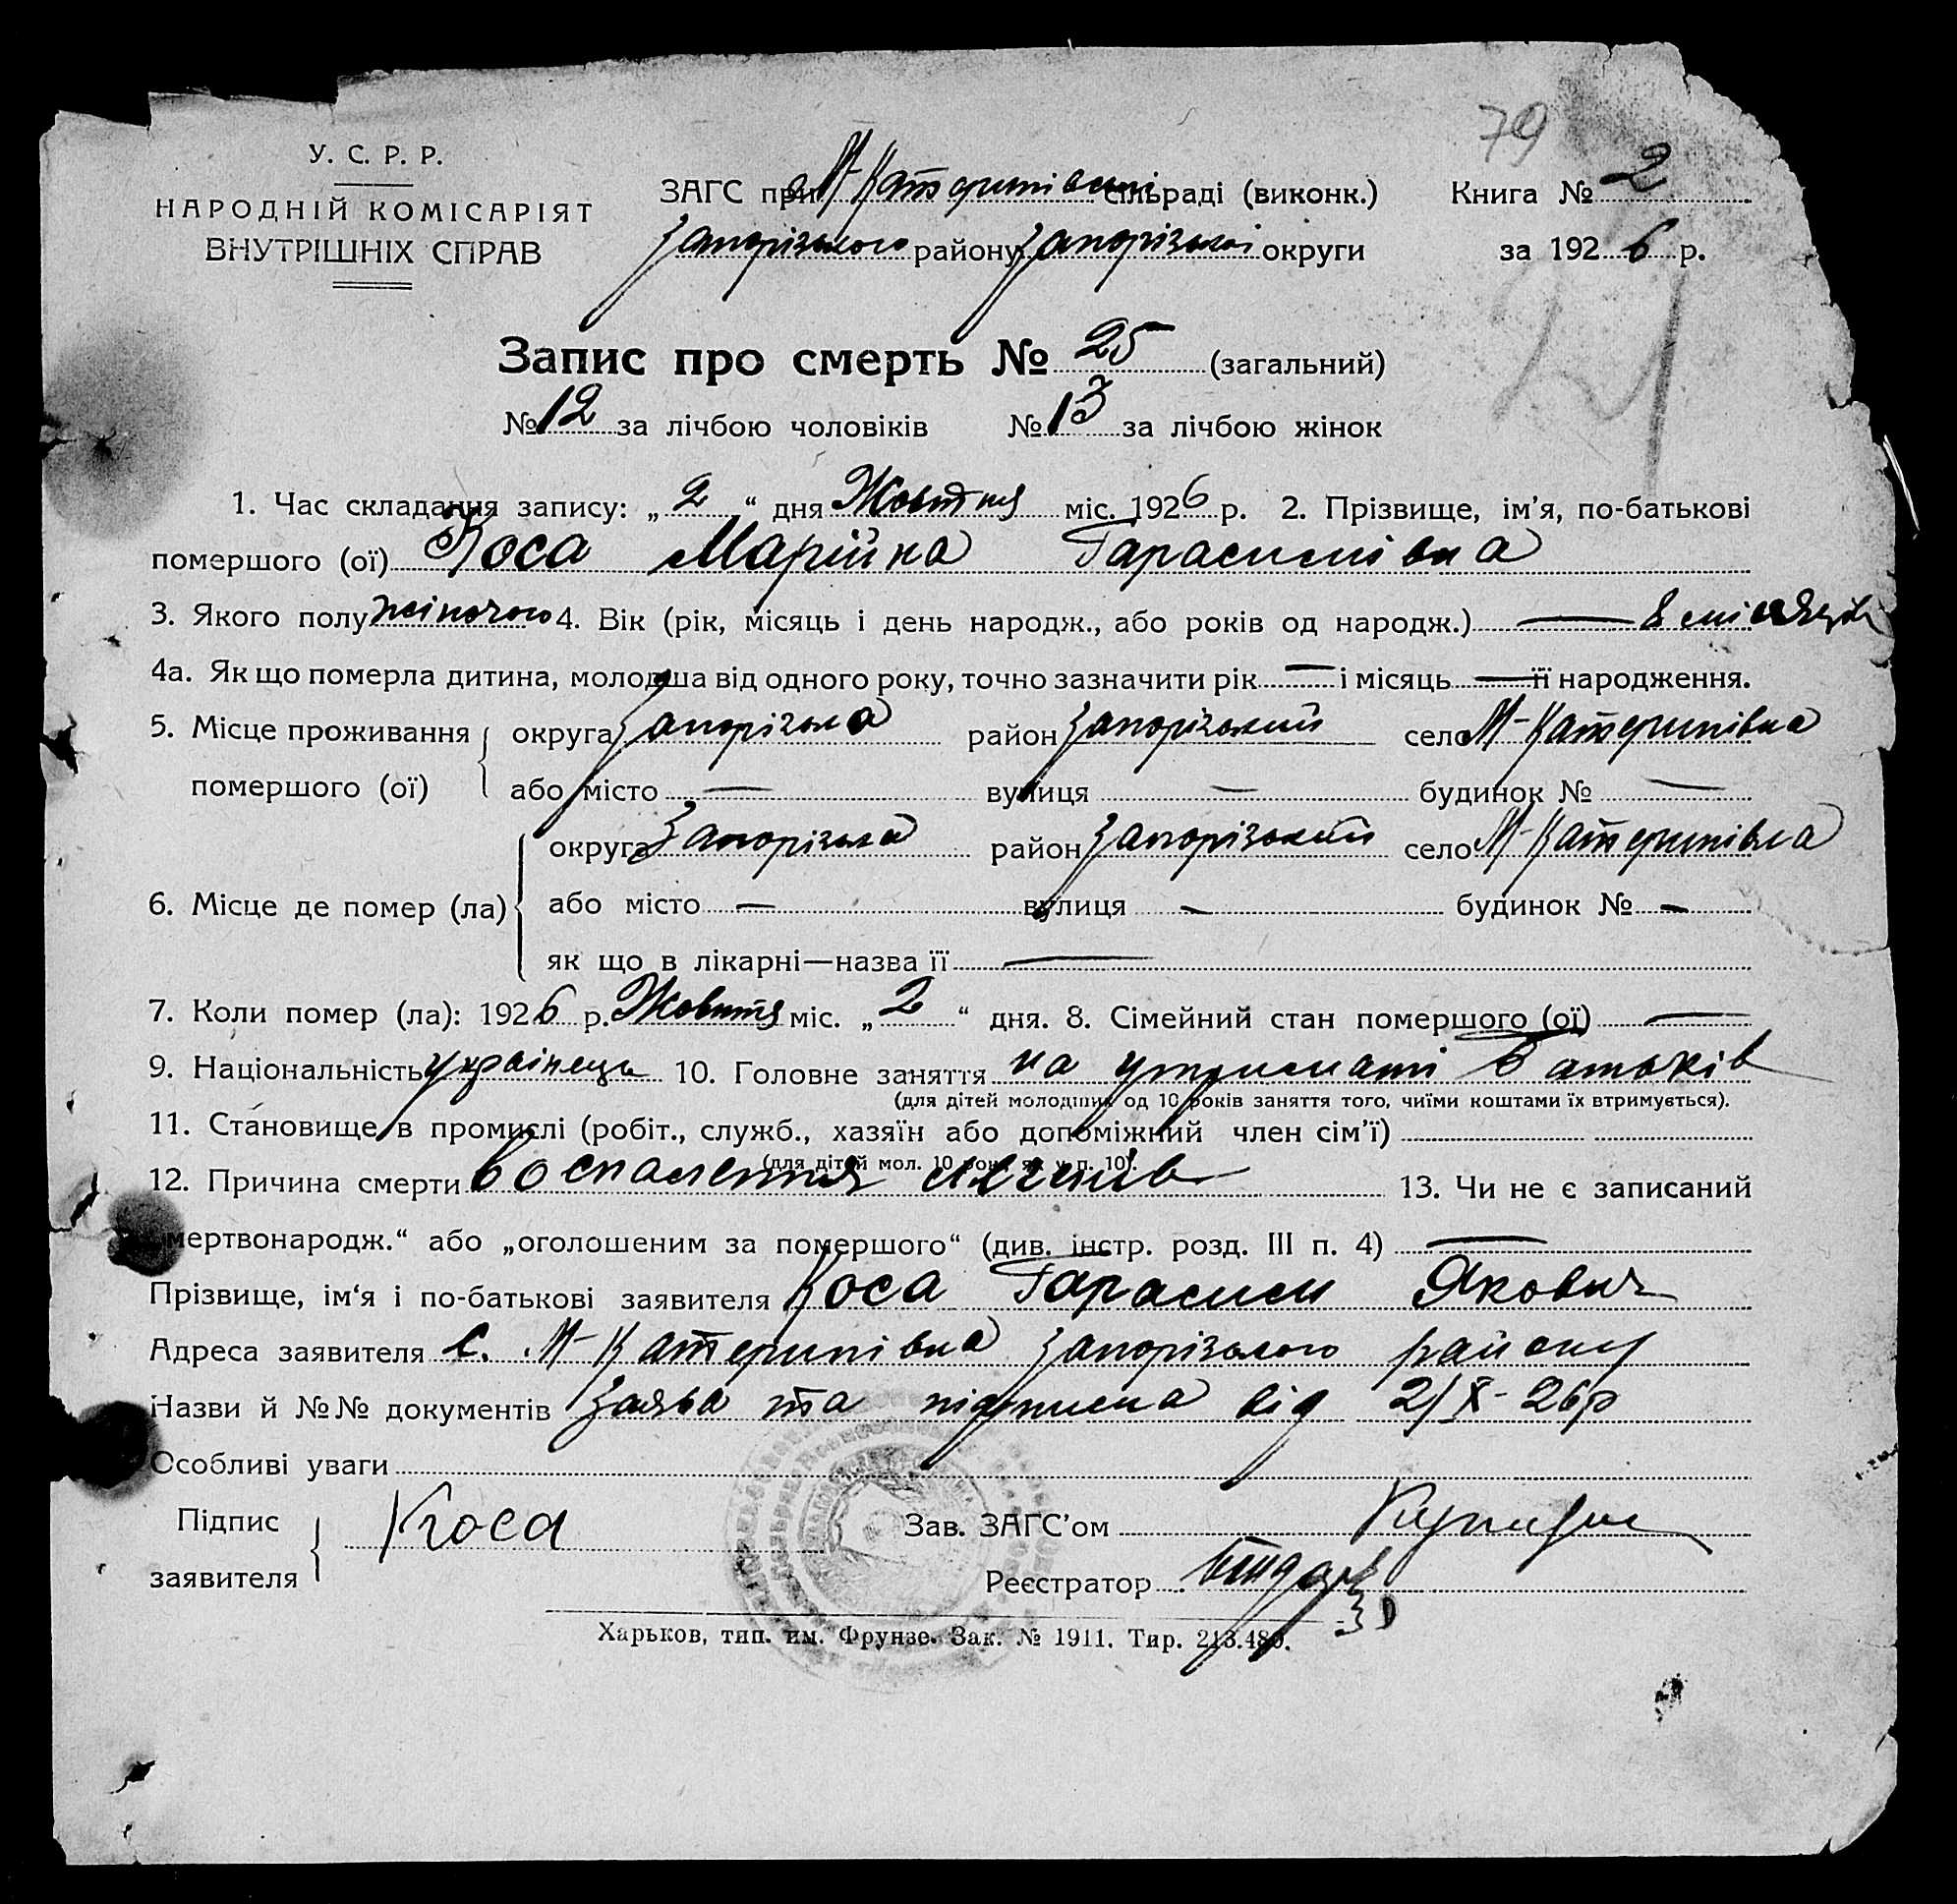 79
У. С. Р. Р.
НАРОДНІЙ КОМІСАРІЯТ
ВНУТРІШНІХ СПРАВ
ЗАГС при М-Катеринівській сільраді (виконк.)
Запорізького району Запорізької округи
Книга № 2
за 1926 р.
21
Запис про смерть № 25 (загальний)
№ 12 за лічбою чоловіків № 13 за лічбою жінок
1. Час складання запису: „2“ дня Жовтня міс. 1926 р. 2. Прізвище, ім'я, по-батькові
помершого (ої) Коса Марійка Гарасимівна
3. Якого полу жіночого 4. Вік (рік, місяць і день народж., або років од народж.) — 8 місяців
4а. Як що померла дитина, молодша від одного року, точно зазначити рік — і місяць — її народження.
5. Місце проживання округа Запорізька район Запорізький село М-Катеринівка
помершого (ої) або місто — вулиця — будинок № —
округа Запорізька район Запорізький село М-Катеринівка
6. Місце де помер (ла) або місто — вулиця — будинок № —
як що в лікарні—назва її —
7. Коли помер (ла): 1926 р. Жовтня міс. „2“ дня. 8. Сімейний стан помершого (ої) —
9. Національність українець 10. Головне заняття на утриманні Батьків
(для дітей молодших од 10 років заняття того, чиїми коштами їх втримується).
11. Становище в промислі (робіт., служб., хазяїн або допоміжний член сім'ї)
(для дітей мол. 10 років як у п. 10).
12. Причина смерти воспалення легенів 13. Чи не є записаний
„мертвонародж.“ або „оголошеним за помершого“ (див. інстр. розд. III п. 4) —
Прізвище, ім'я і по-батькові заявителя Коса Гарасим Якович
Адреса заявителя с. М-Катеринівка Запорізького району
Назви й №№ документів Заява та підписка від 2/X-26р
Особливі уваги
Підпис
заявителя Коса
Зав. ЗАГС'ом
Реєстратор
Харьков, тип. им. Фрунзе. Зак. № 1911. Тир. 213.480.